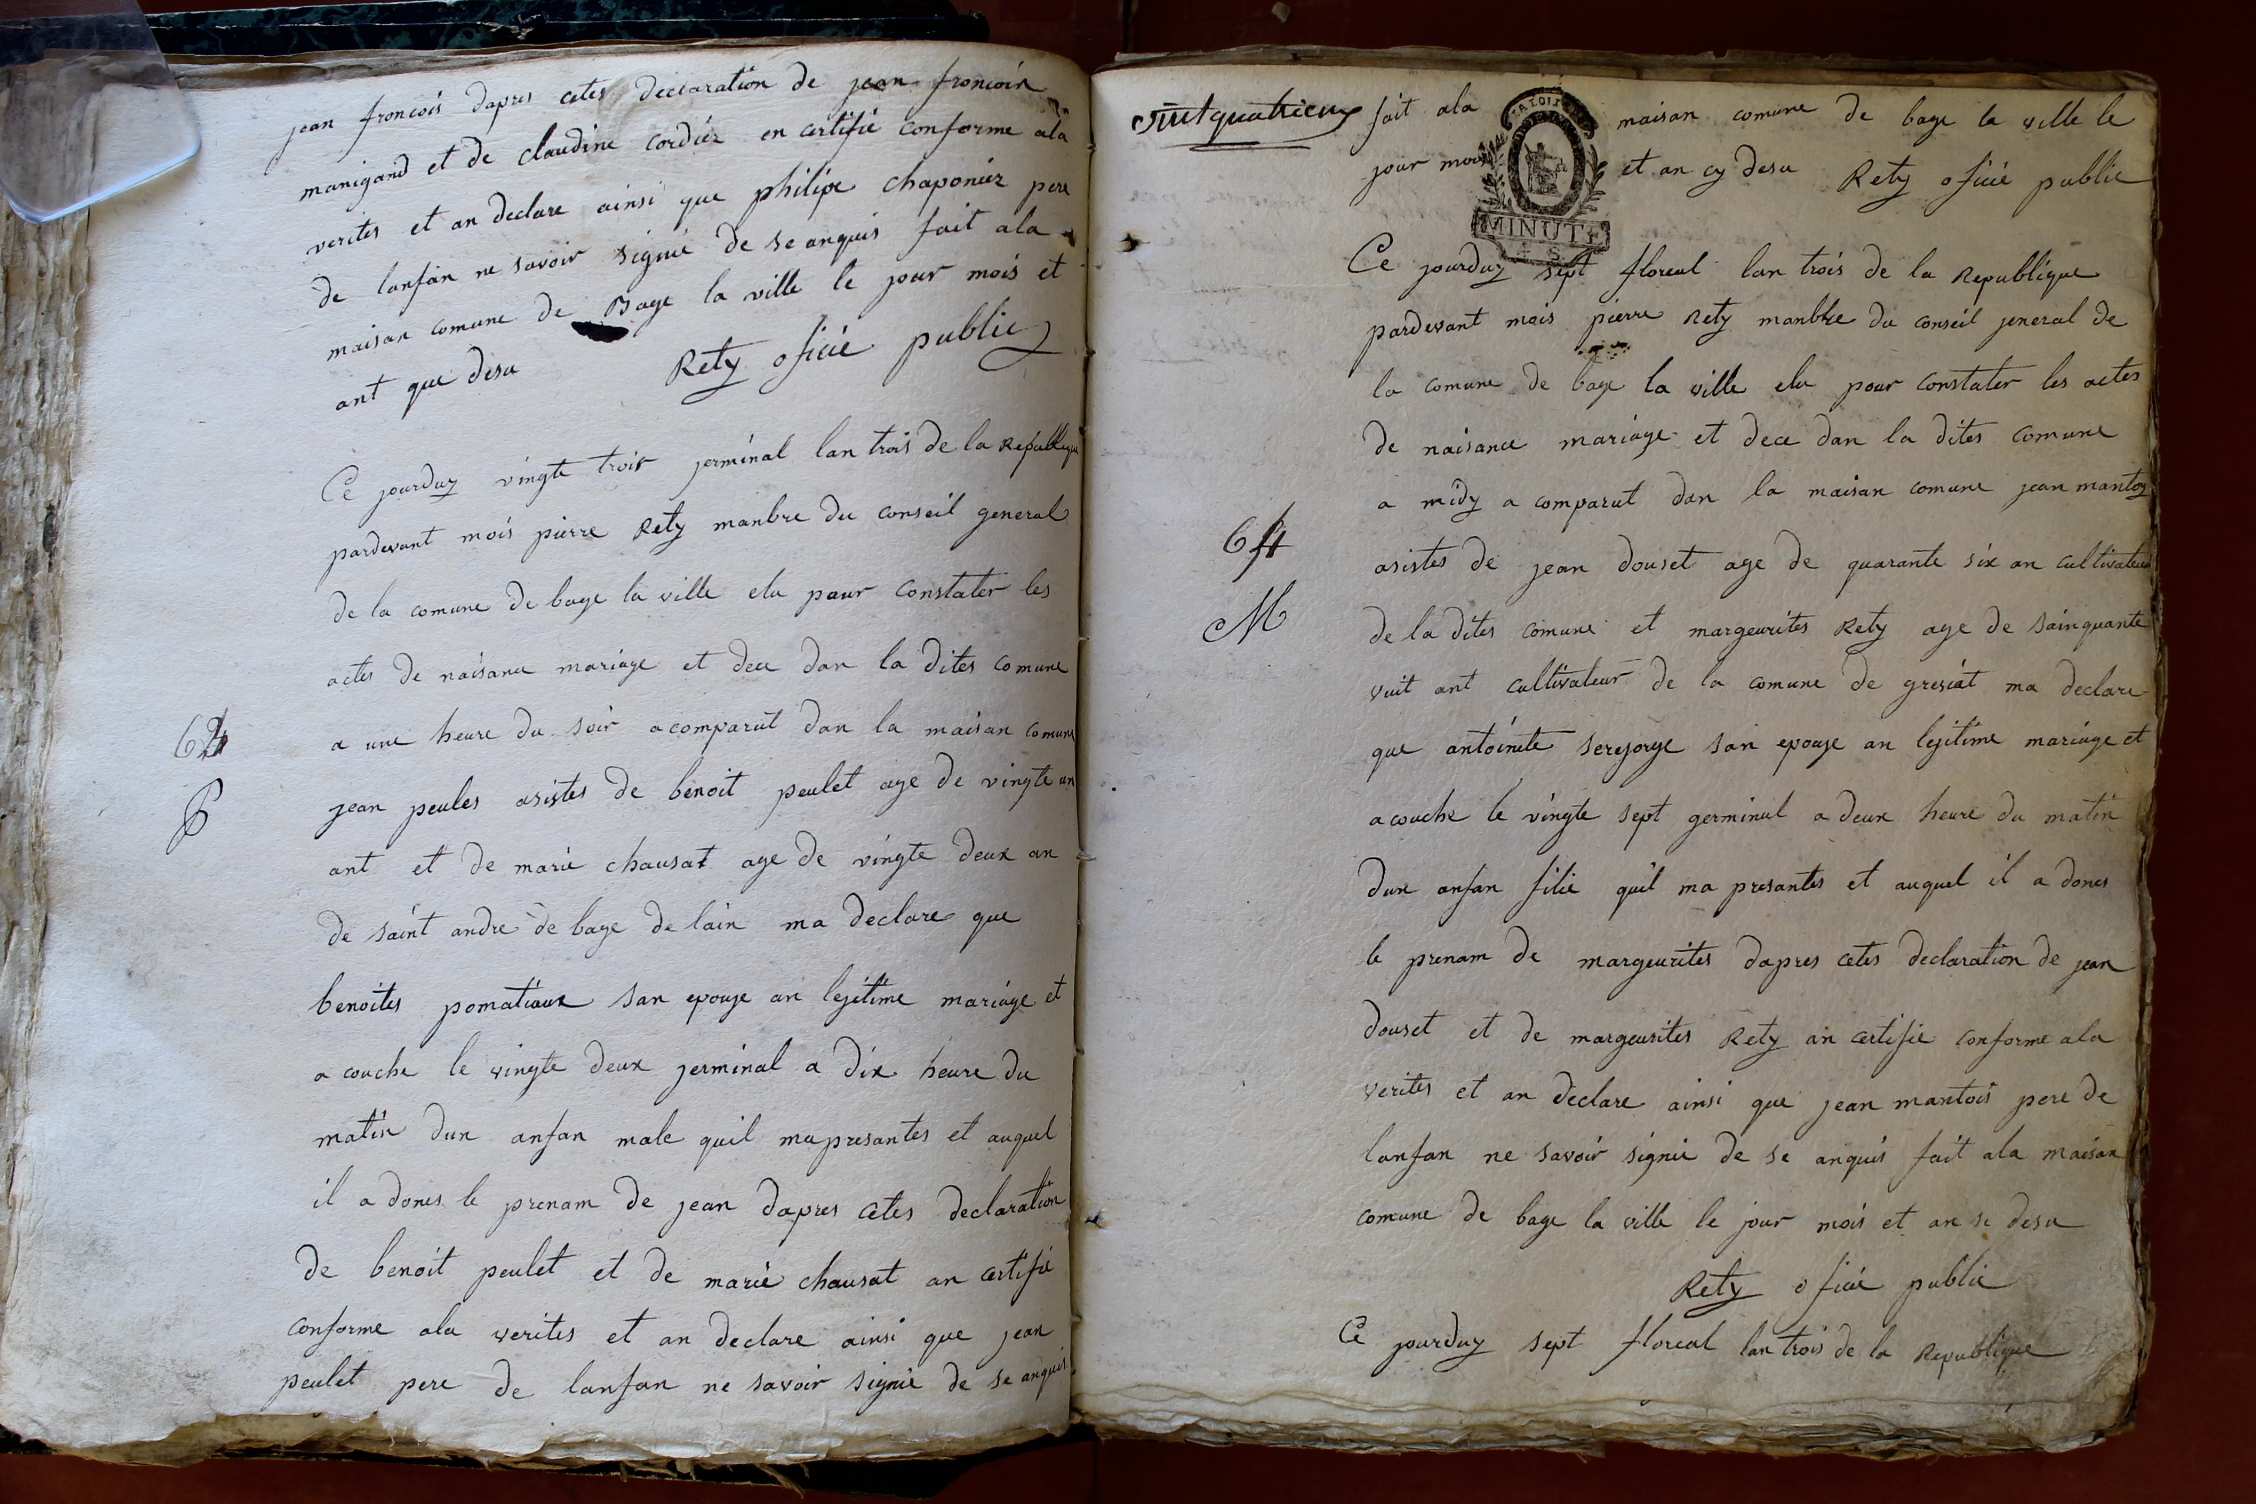 jean froncois dapres cetes declaration de jean froncoix
manigand et de claudine cordiéz en certifié conforme ala
verites et an declare ainsi que philipe chaponiéz pere
de lanfan ne savoir signié de se anquis fait ala
maisan comune de Bage la ville le jour mois et
ant que desu Rety ofició public
Ce jourduy vingte trois jerminal lan trois de la Republique
pardevant mois pierre Rety manbre du conseil general
de la comune de bage la ville elu pour constater les
actes de naisance mariage et dece dan la dites comune
a une heure du soir a comparut dan la maisan comune
jean peules asistes de benoit peulet age de vingte un
ant et de marie chausat age de vingte deux an
de saint andre de bage de lain ma declare que
benoites pomatiaux san epouse an lejitime mariage et
a couche le vingte deux jerminal a dix heure du
matin dun anfan male quil ma presantes et auquel
il a dones le prenam de jean dapres cetes declaration
de benoit peulet et de marie chausat an certifié
conforme ala verites et an declare ainsi que jean
peulet pere de lanfan ne savoir signié de se anquis
P
fait ala maisan comune de bage la ville le
jour mois et an cy desu Rety oficié public
MINUTE
Ce jourduy sept floreal lan trois de la Republique
pardevant mois pierre Rety manbre du conseil jeneral de
la comune de bage la ville elu pour constater les actes
de naisance mariage et dece dan la dites comune
a midy a comparut dan la maisan comune jean mantoy
64
asistes de jean douset age de quarante six an cultivateur
M
de la dites comune et margeurites Rety age de sainquante
vuit ant cultivateur de la comune de gresiat ma declare
que antoinete seregorge san epouse an lejitime mariage et
a couche le vingte sept germinal a deux heure du matin
dun anfan filie quil ma presantes et auquel il a dones
le prenam de margeurites dapres cetes declaration de jean
douset et de margeurites Rety an certifié conforme ala
verites et an declare ainsi que jean mantois pere de
lanfan ne savoir signié de se anquis fait ala maisan
comune de bage la ville le jour mois et an si desu
Rety oficié public
Ce jourduy sept floreal lan trois de la Republique